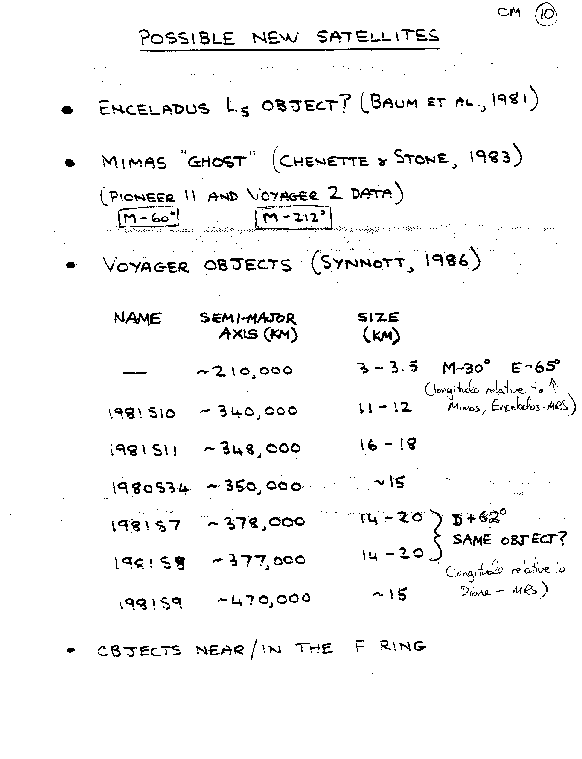 CM 10
POSSIBLE NEW SATELLITES
• ENCELADUS L5 OBJECT? (BAUM ET AL., 1981)
• MIMAS "GHOST" (CHENETTE & STONE, 1983)
(PIONEER 11 AND VOYAGER 2 DATA)
M-60° M-212°
• VOYAGER OBJECTS (SYNNOTT, 1986)
NAME SEMI-MAJOR AXIS (KM) SIZE (KM)
— ~210,000 3-3.5 M-30° E-65°
(longitude relative to ↑
Mimas, Enceladus - MRS)
1981S10 ~340,000 11-12
1981S11 ~348,000 16-18
1980S34 ~350,000 ~15
1981S7 ~378,000 14-20 D+62°
SAME OBJECT?
1981S8 ~377,000 14-20
(longitude relative to
Dione - MRS)
1981S9 ~470,000 ~15
• OBJECTS NEAR/IN THE F RING